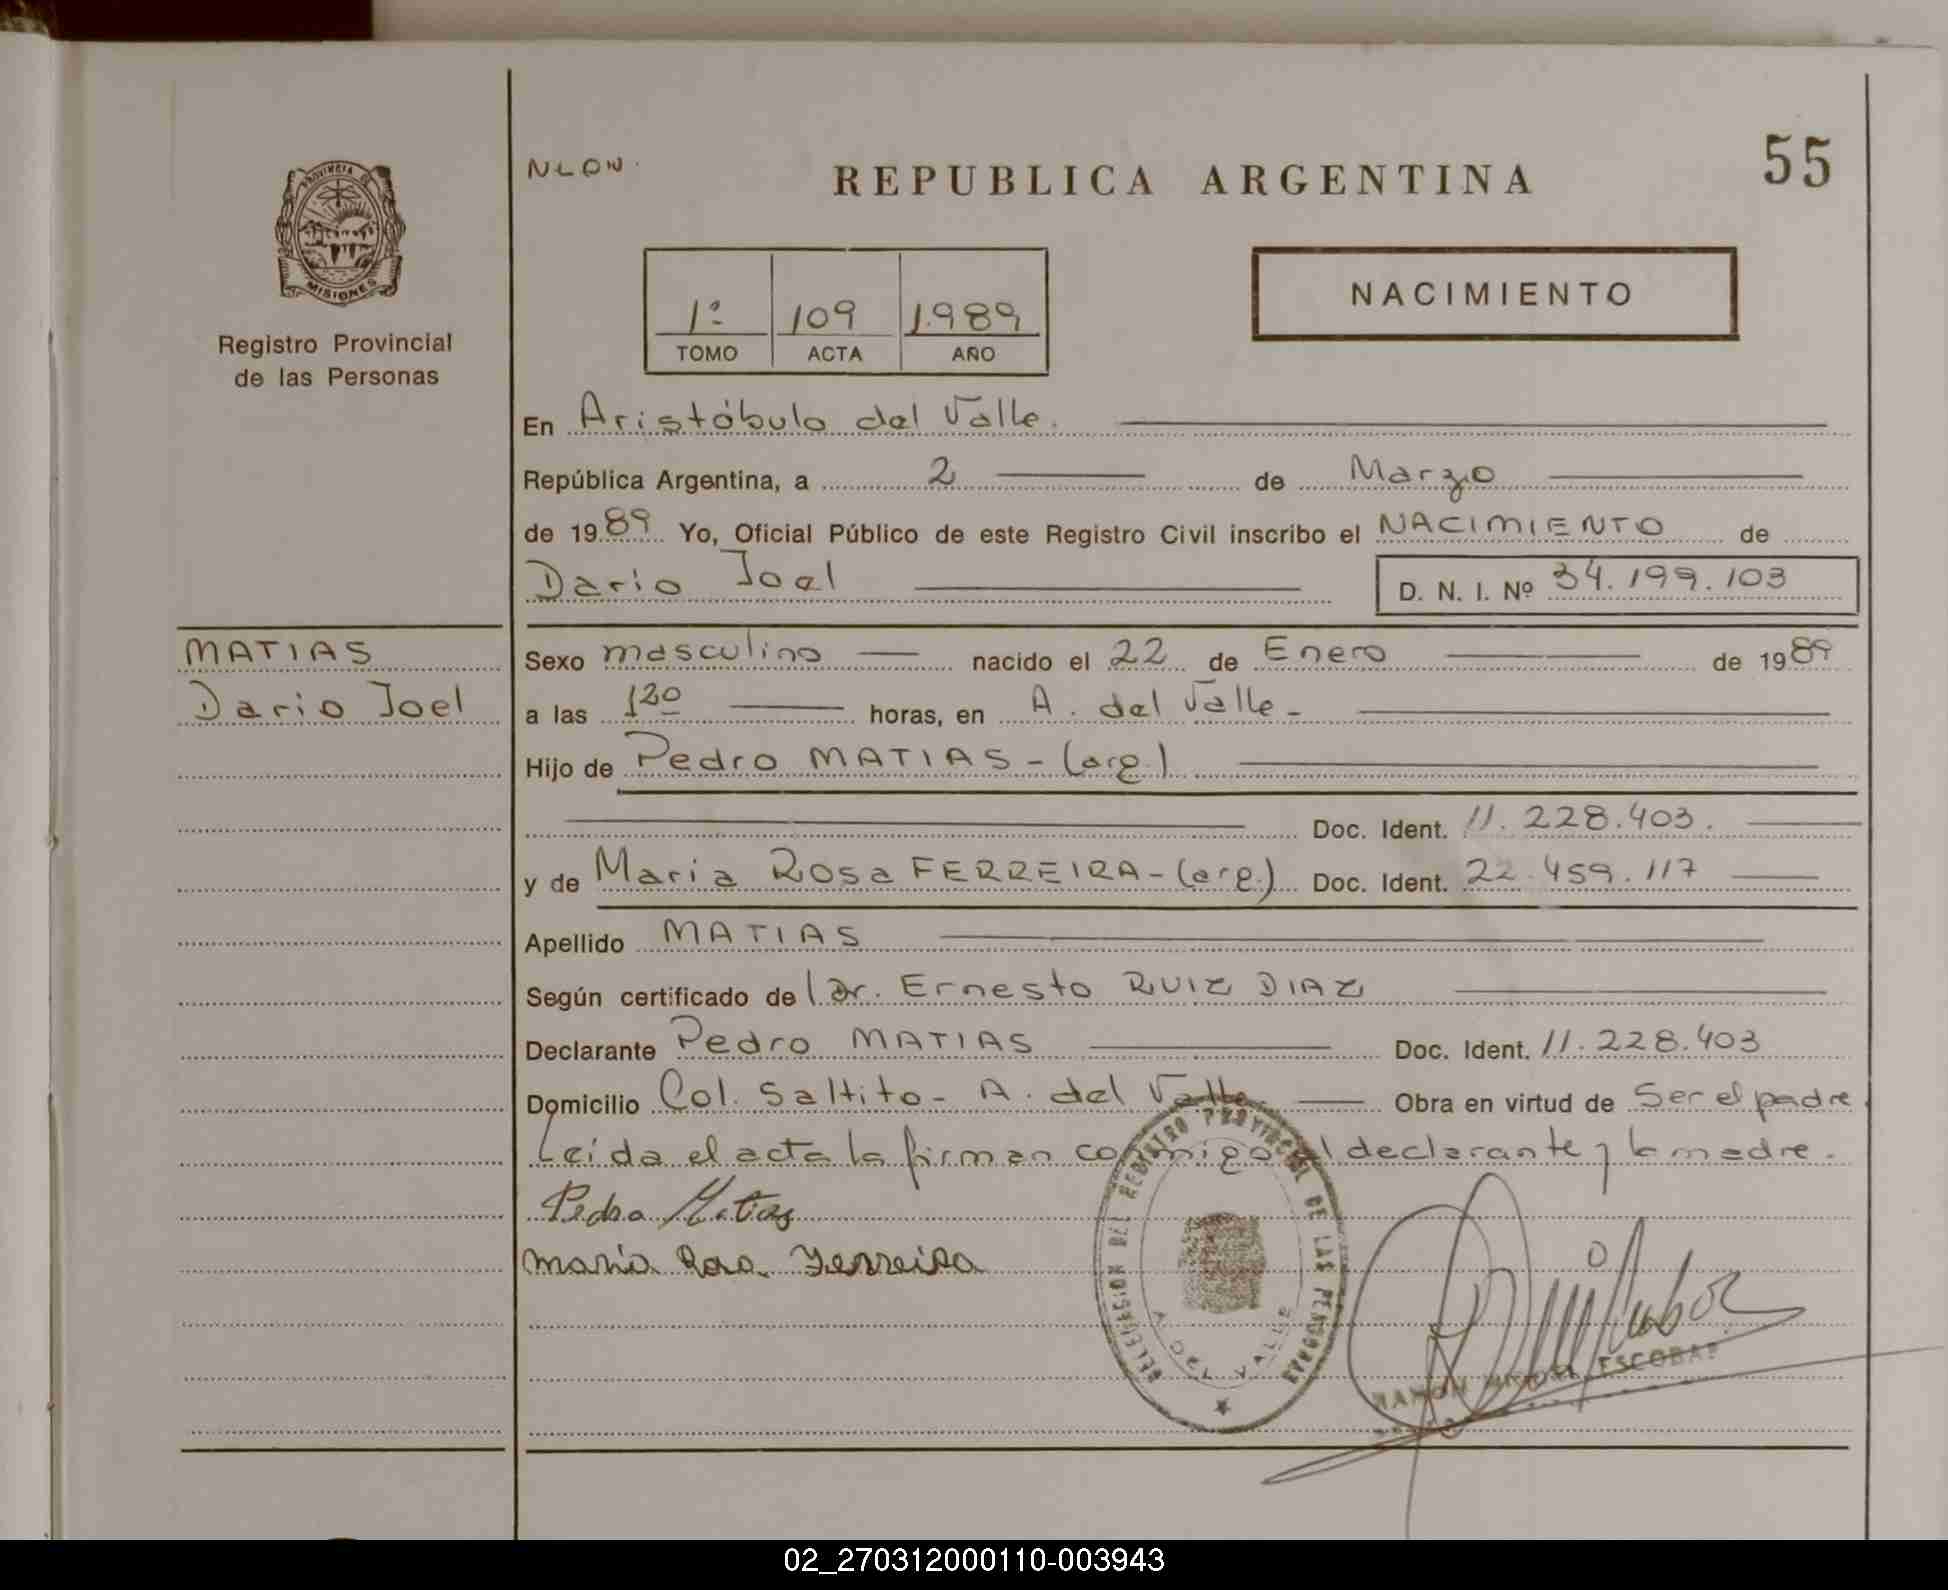 NLDN.
REPUBLICA ARGENTINA
55
PROVINCIA DE
MISIONES
Registro Provincial
de las Personas
1º 109 1.989
TOMO ACTA AÑO
NACIMIENTO
En Aristóbulo del Valle.
República Argentina, a 2 de Marzo
de 1989 Yo, Oficial Público de este Registro Civil inscribo el NACIMIENTO de
Dario Joel
D. N. I. Nº 34.199.103
MATIAS
Dario Joel
Sexo masculino nacido el 22 de Enero de 1989
a las 1 30 horas, en A. del Valle-
Hijo de Pedro MATIAS - (arg.)
Doc. Ident. 11.228.403.
y de Maria Rosa FERREIRA - (arg.) Doc. Ident. 22.459.117
Apellido MATIAS
Según certificado de Dr. Ernesto RUIZ DIAZ
Declarante Pedro MATIAS Doc. Ident. 11.228.403
Domicilio Col. Saltito - A. del Valle Obra en virtud de Ser el padre
Leida el acta la firman conmigo el declarante y la madre.
Pedro Matias
Maria Rosa Ferreira
DELEGACION DEL REGISTRO PROVINCIAL DE LAS PERSONAS
A. DEL VALLE
RAMON MIGUEL ESCOBAR
02_270312000110-003943